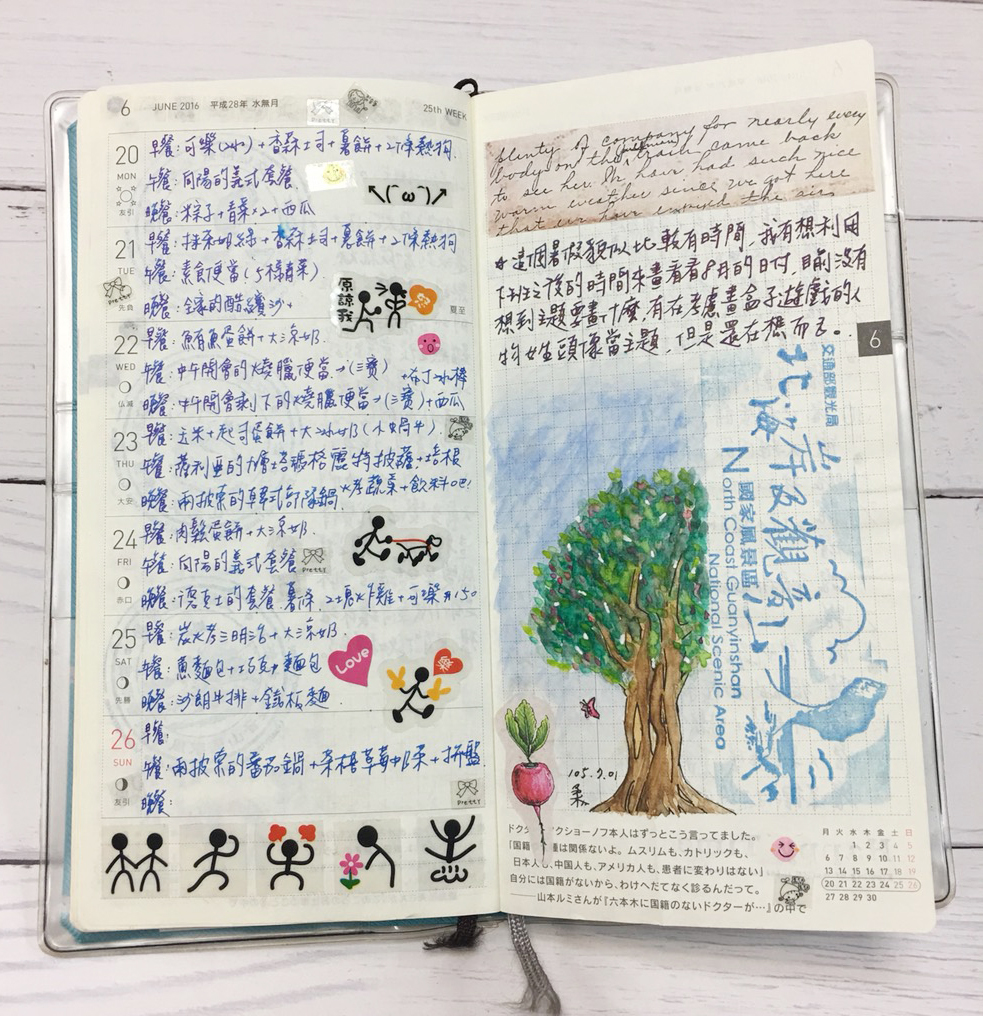 6 JUNE 2016 平成28年 水無月 25th WEEK
20 早餐:可樂(小)+香蒜土司+薯餅+2條熱狗
MON 午餐:向陽的義式套餐
友引 晚餐:粽子+青菜×2+西瓜
\(´ω`)/
21 早餐:抹茶奶綠+香蒜土司+薯餅+2條熱狗
TUE 午餐:素食便當(5樣青菜)
先負 晚餐:全家的酷繽沙
Pretty
原諒我
夏至
22 早餐:鮪魚蛋餅+大冰奶
WED 午餐:中午開會的燒臘便當→(三寶)+布丁冰棒
仏滅 晚餐:中午開會剩下的燒臘便當→(三寶)+西瓜
23 早餐:玉米+起司蛋餅+大冰奶
THU 午餐:薩利亞的瑪格麗特披薩+培根
大安 晚餐:兩披索的韓式部隊鍋+飲料吧
24 早餐:肉鬆蛋餅+大冰奶
FRI 午餐:向陽的義式套餐
Pretty
赤口 晚餐:德克士的套餐 薯條、2塊炸雞+可樂 $150
25 早餐:炭烤三明治+大冰奶
SAT 午餐:麵包+巧克力麵包
Love
先勝 晚餐:沙朗牛排+鐵板麵
26 早餐:
SUN 午餐:兩披索的番茄鍋+拼盤
友引 晚餐:
Pretty
plenty of company for nearly every
body on the train came back
to see her. We have had such nice
warm weather since we got here
that we have enjoyed the
這個暑假貌似比較有時間,我有想利用
下班之後的時間來畫看看8月的日付,目前沒有
想到主題要畫什麼,有在考慮畫盒子遊戲的人
物女生頭像當主題,但是還在想而已。
6
交通部觀光局
北海岸及觀音山
國家風景區
North Coast Guanyinshan
National Scenic Area
105.7.01
柔
ドクター・アクショーノフ本人はずっとこう言ってました。
「国籍 種は関係ないよ。ムスリムも、カトリックも、
日本人も、中国人も、アメリカ人も、患者に変わりはない」
自分には国籍がないから、わけへだてなく診るんだって。
──山本ルミさんが『六本木に国籍のないドクターが…』の中で
月 火 水 木 金 土 日
1 2 3 4 5
6 7 8 9 10 11 12
13 14 15 16 17 18 19
20 21 22 23 24 25 26
27 28 29 30